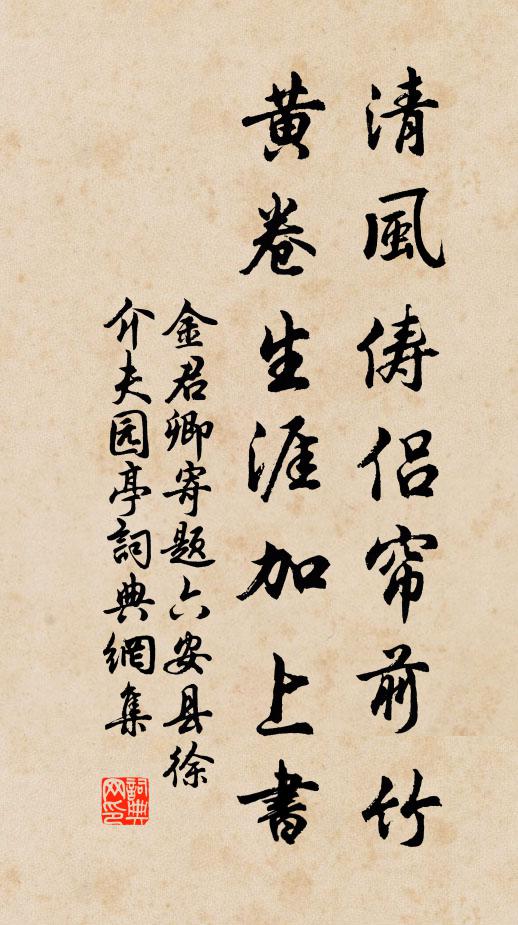 清風俦侣帘前竹
黄卷生涯加上書
金君卿寄题六安县徐
介夫园亭詞典網集
詞典网印